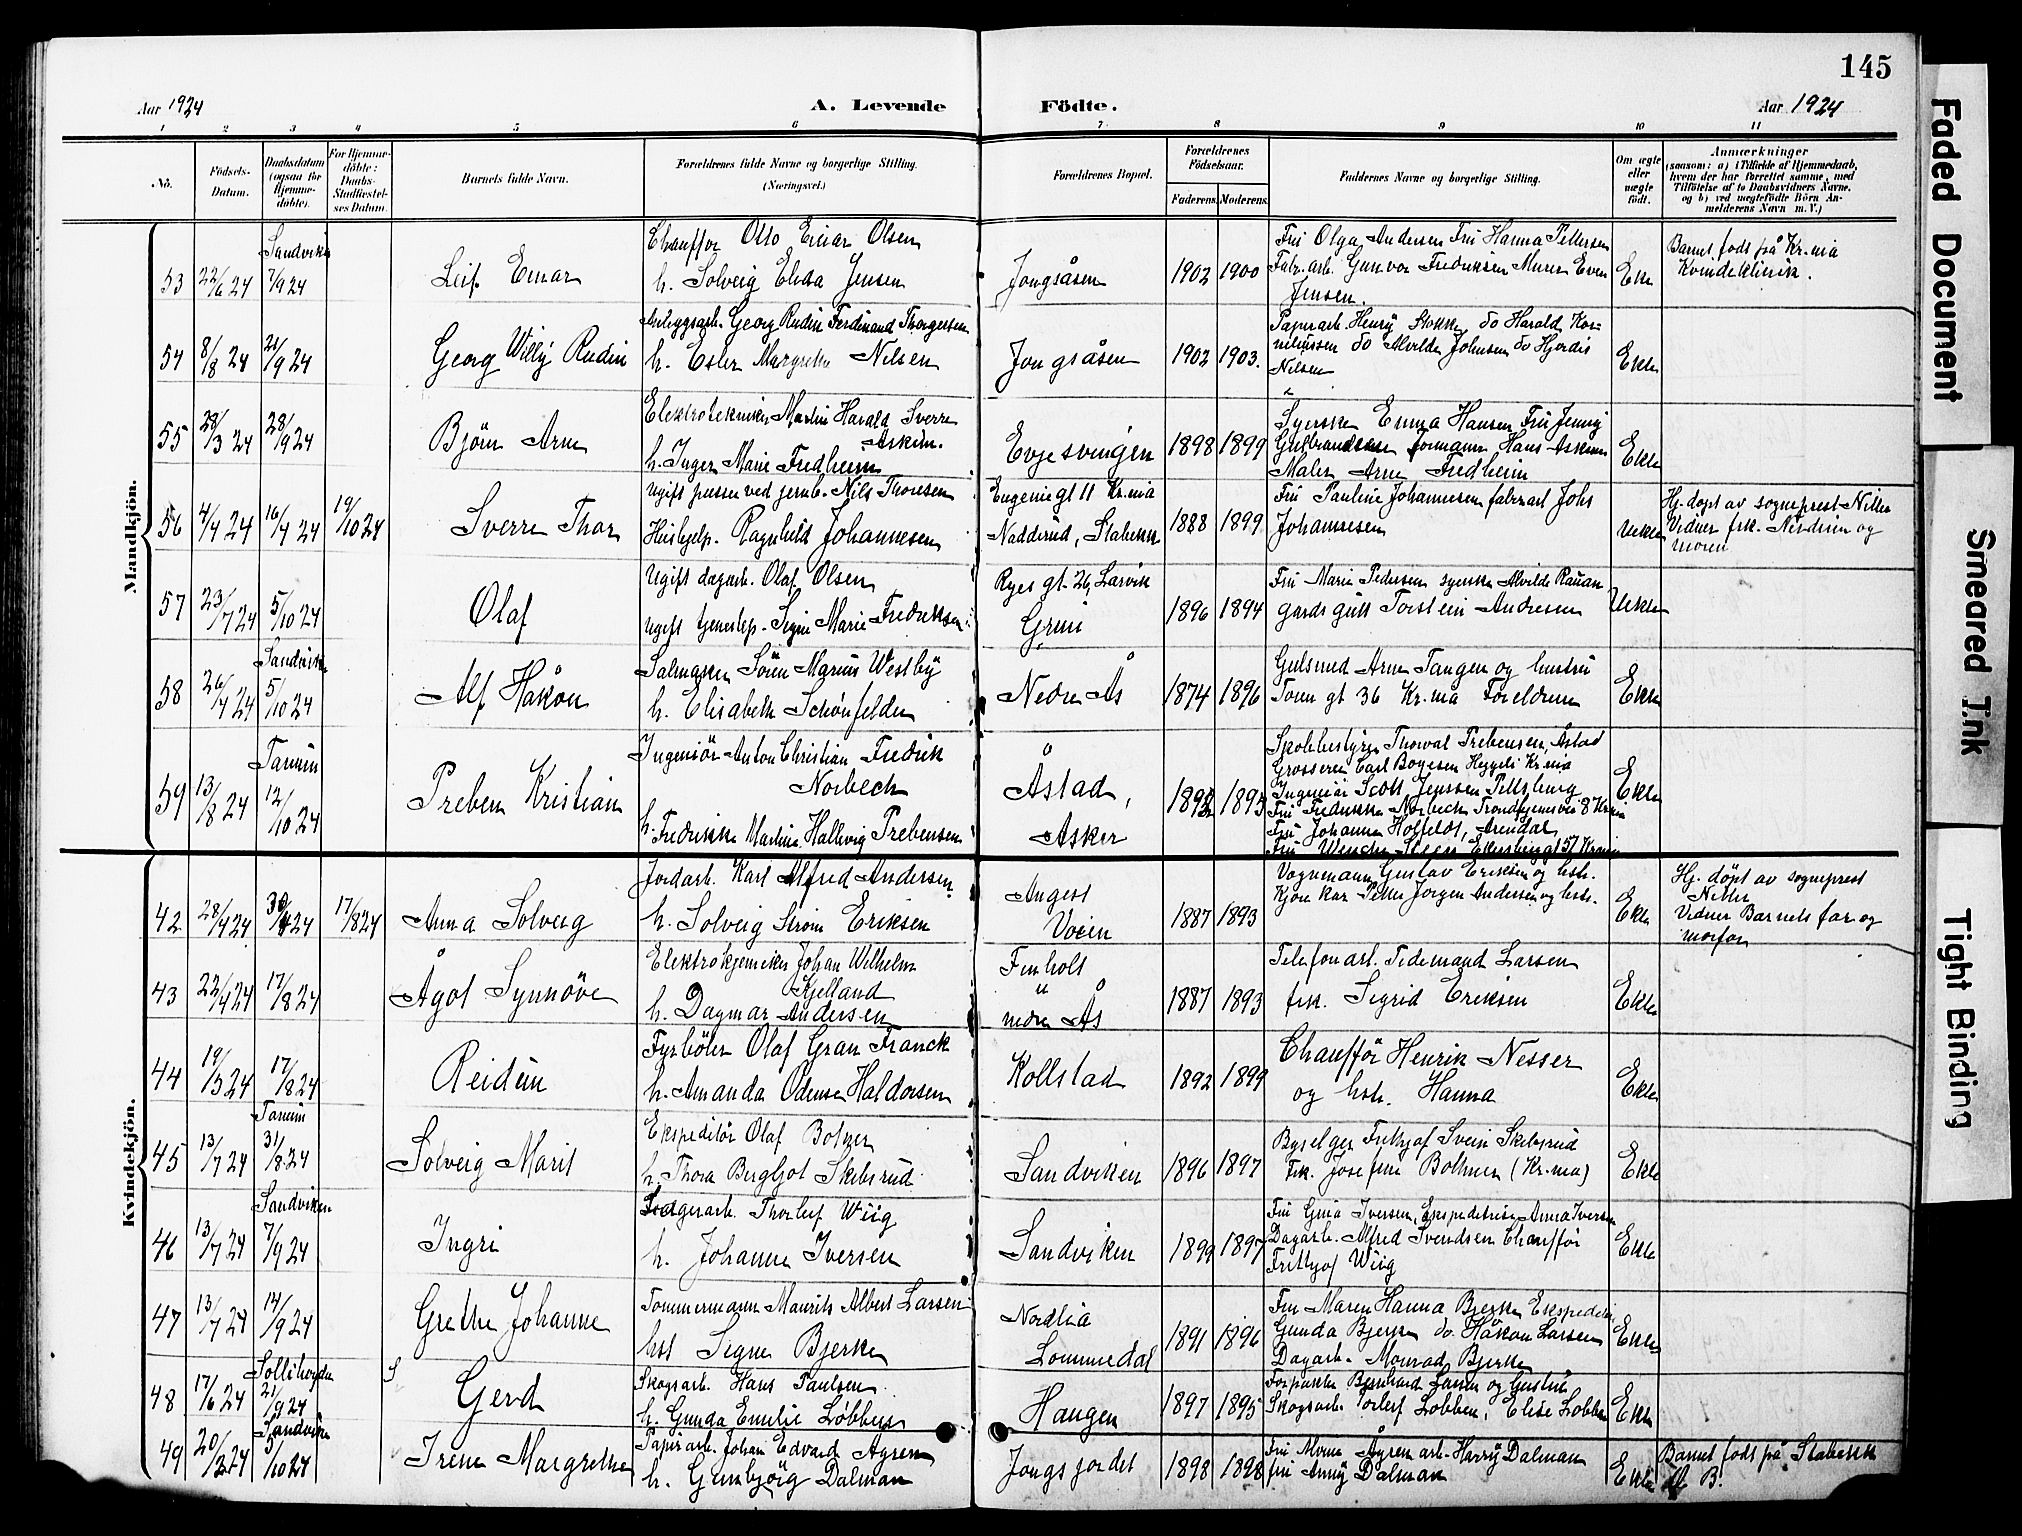 145
Aar 1924
A. Levende Födte.
Aar 1924
1 2 3 4 5 6 7 8 9 10 11
No.
Födsels-Datum.
Daabsdatum (ogsaa for Hjemme-döbte).
For Hjemme-döbte: Daabs-Stadfæstel-ses Datum.
Barnets fulde Navn.
Forældrenes fulde Navne og borgerlige Stilling.
(Næringsvei.)
Forældrenes Bopæl.
Forældrenes Födselsaar.
Faderens. Moderens.
Faddernes Navne og borgerlige Stilling.
Om ægte eller uægte födt.
Anmærkninger
(saasom: a) i Tilfælde af Hjemmedaab,
hvem der har forrettet samme, med
Tilföielse af to Daabsvidners Navne.
og b) ved uægtefödte Börn An-
melderens Navn m. V.)
Mandkjön.
53 22/6 24 Sandvika 7/9 24
Leif Einar
Chauffør Otto Einar Olsen
h. Solveig Elida Jensen
Jongsåsen
1902 1900
Fru Olga Andersen Fru Hanna Pettersen
Fabr.arb. Gunvor Fredriksen Murer Even
Jensen.
Ekte
Barnet født på Kr.nia
Kvindeklinik.
54 8/8 24 21/9 24
Georg Willy Rudin
Anleggsarb. Georg Rudin Ferdinand Thorgersen
h. Ester Margrethe Nilsen
Jongsåsen
1902 1903.
Papirarb Henry Stokke do Harald Kor-
neliussen do Alvilde Johnsen do Hjørdis
Nilsen
Ekte
55 28/3 24 28/9 24
Bjørn Arne
Elektrotekniker Martin Harald Sverre
Askim.
h. Inger Marie Fredheim
Evjesvingen
1898 1899
Syerske Emma Hansen Fru Jenny
Gulbrandsen Formann Hans Askim
Maler Arne Fredheim
Ekte
56 4/4 24 16/4 24 19/10 24
Sverre Thor
Ugift pusser ved jernb. Nils Thoresen
Hushjelp. Ragnhild Johannesen
Eugenie gt 11 Kr.nia
Nadderud, Stabekk
1888 1899
Fru Pauline Johannesen fabr.arb Johs
Johannesen
Uekte
Hj. døpt av sogneprest Nitter
Vidner frk. Nirdrum og
moren
57 23/7 24 5/10 24
Olaf
Ugift dagarb. Olaf Olsen
Ugift tjenestep. Signe Marie Fredriksen
Ryes gt. 26, Larvik
Grini
1896 1894
Fru Marie Pedersen syerske Alvilde Rauan
gardsgutt Torstein Andresen
Uekte
58 26/4 24 Sandvika 5/10 24
Alf Håkon
Salmaker Søren Marius Westby
h. Elisabeth Schønfelder
Nedre Ås
1874 1896
Gulsmed Arne Tangen og hustru
Toten gt 36 Kr.nia Foreldrene
Ekte
59 13/8 24 Tanum 12/10 24
Preben Kristian
Ingeniør Anton Christian Fredrik
Norbech
h. Fredrikke Martine Hallevig Prebensen
Åstad,
Asker
1892 1895
Skolebestyrer Thorvat Prebensen, Åstad
Grosserer Carl Boyesen Heggeli Kr.nia
Ingeniør Scott Jenssen Pittsburg
Fru Fredrikke Norbech Trondhjemsvei 8 Kr.nia
Fru Johanna Holfeldt, Arendal
Fru Wenche Steen Ekersberg gt 57 Kr.nia
Ekte
Kvindekjön.
42 28/4 24 30/4 24 17/8 24
Anna Solveig
Jordarb. Karl Alfred Andersen
h. Solveig Strøm Eriksen
Angest
Voien
1887 1893
Vognmann Gustav Eriksen og hstr.
Kjørekar Petter Jørgen Andersen og hstr.
Ekte
Hj. døpt av sogneprest
Nitter
Vidner Barnets far og
morfar
43 22/4 24 17/8 24
Ågot Synnøve
Elektrokjemiker Johan Wilhelm
Kjelland
h. Dagmar Andersen
Finholt
"
nedre Ås
1887 1893
Telefonarb. Tidemand Larsen
frk. Sigrid Eriksen
Ekte
44 19/3 24 17/8 24
Reidun
Fyrbøter Olaf Gran Franck
h. Amanda Odensen Haldorsen
Kollstad
1892 1899
Chauffør Henrik Nesser
og hstr. Hanna
Ekte
45 13/7 24 Tanum 31/8 24
Solveig Marit
Ekspeditør Olaf Bohmer
h. Thora Bergljot Skibsrud
Sandviken
1896 1897
Byselger Fritjof Svein Skibsrud
Frk. Josefine Bohmer (Kr.nia)
Ekte
46 13/7 24 Sandviken 7/9 24
Ingri
Thorleif Wiig
h. Johanne Iversen
Sandviken
1899 1897
Fru Gina Iversen, Ekspeditrise Anna Iversen
Dagarb. Alfred Svendsen Chauffør
Frithjof Wiig
Ekte
47 13/7 24 14/9 24
Grethe Johanne
Tømmermann Maurits Albert Larsen
hst Signe Bjerke
Nordlia
Lommedal
1891 1896
Fru Maren Hanna Bjerke Ekspeditr.
Gunda Bjerke do. Håkon Larsen
Dagarb. Monrad Bjerke
Ekte
48 17/6 24 Sollihøgda 21/9 24
Gerd
Skogsarb. Hans Paulsen
h. Gunda Emilie Løbben
Haugen
1897 1895
Forpakter Bernhard Larsen og hustru
Skogsarb. Torleif Løbben, Elise Løbben
Ekte
49 20/3 24 Sandvika 5/10 24
Irene Margrethe
Papirarb. Johan Edvard Ågren
h. Gunbjørg Dalman
Jongsjordet
1898 1898
Fru Alvine Ågren arb. Harry Dalman
fru Anny Dalman
Ekte
Barnet født på Stabekk
B.
Faded Document
Smeared Ink
Tight Binding